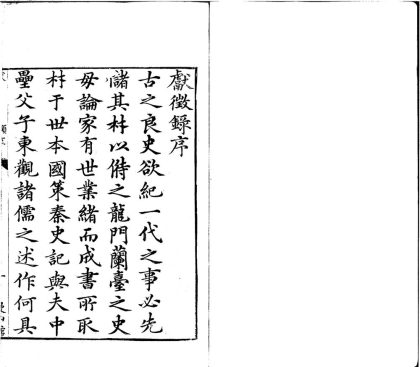 獻徵錄序
古之良史欲紀一代之事必先
儲其材以待之龍門蘭臺之史
毋論家有世業緒而成書所取
材于世本國策秦史記與夫中
壘父子東觀諸儒之述作何具